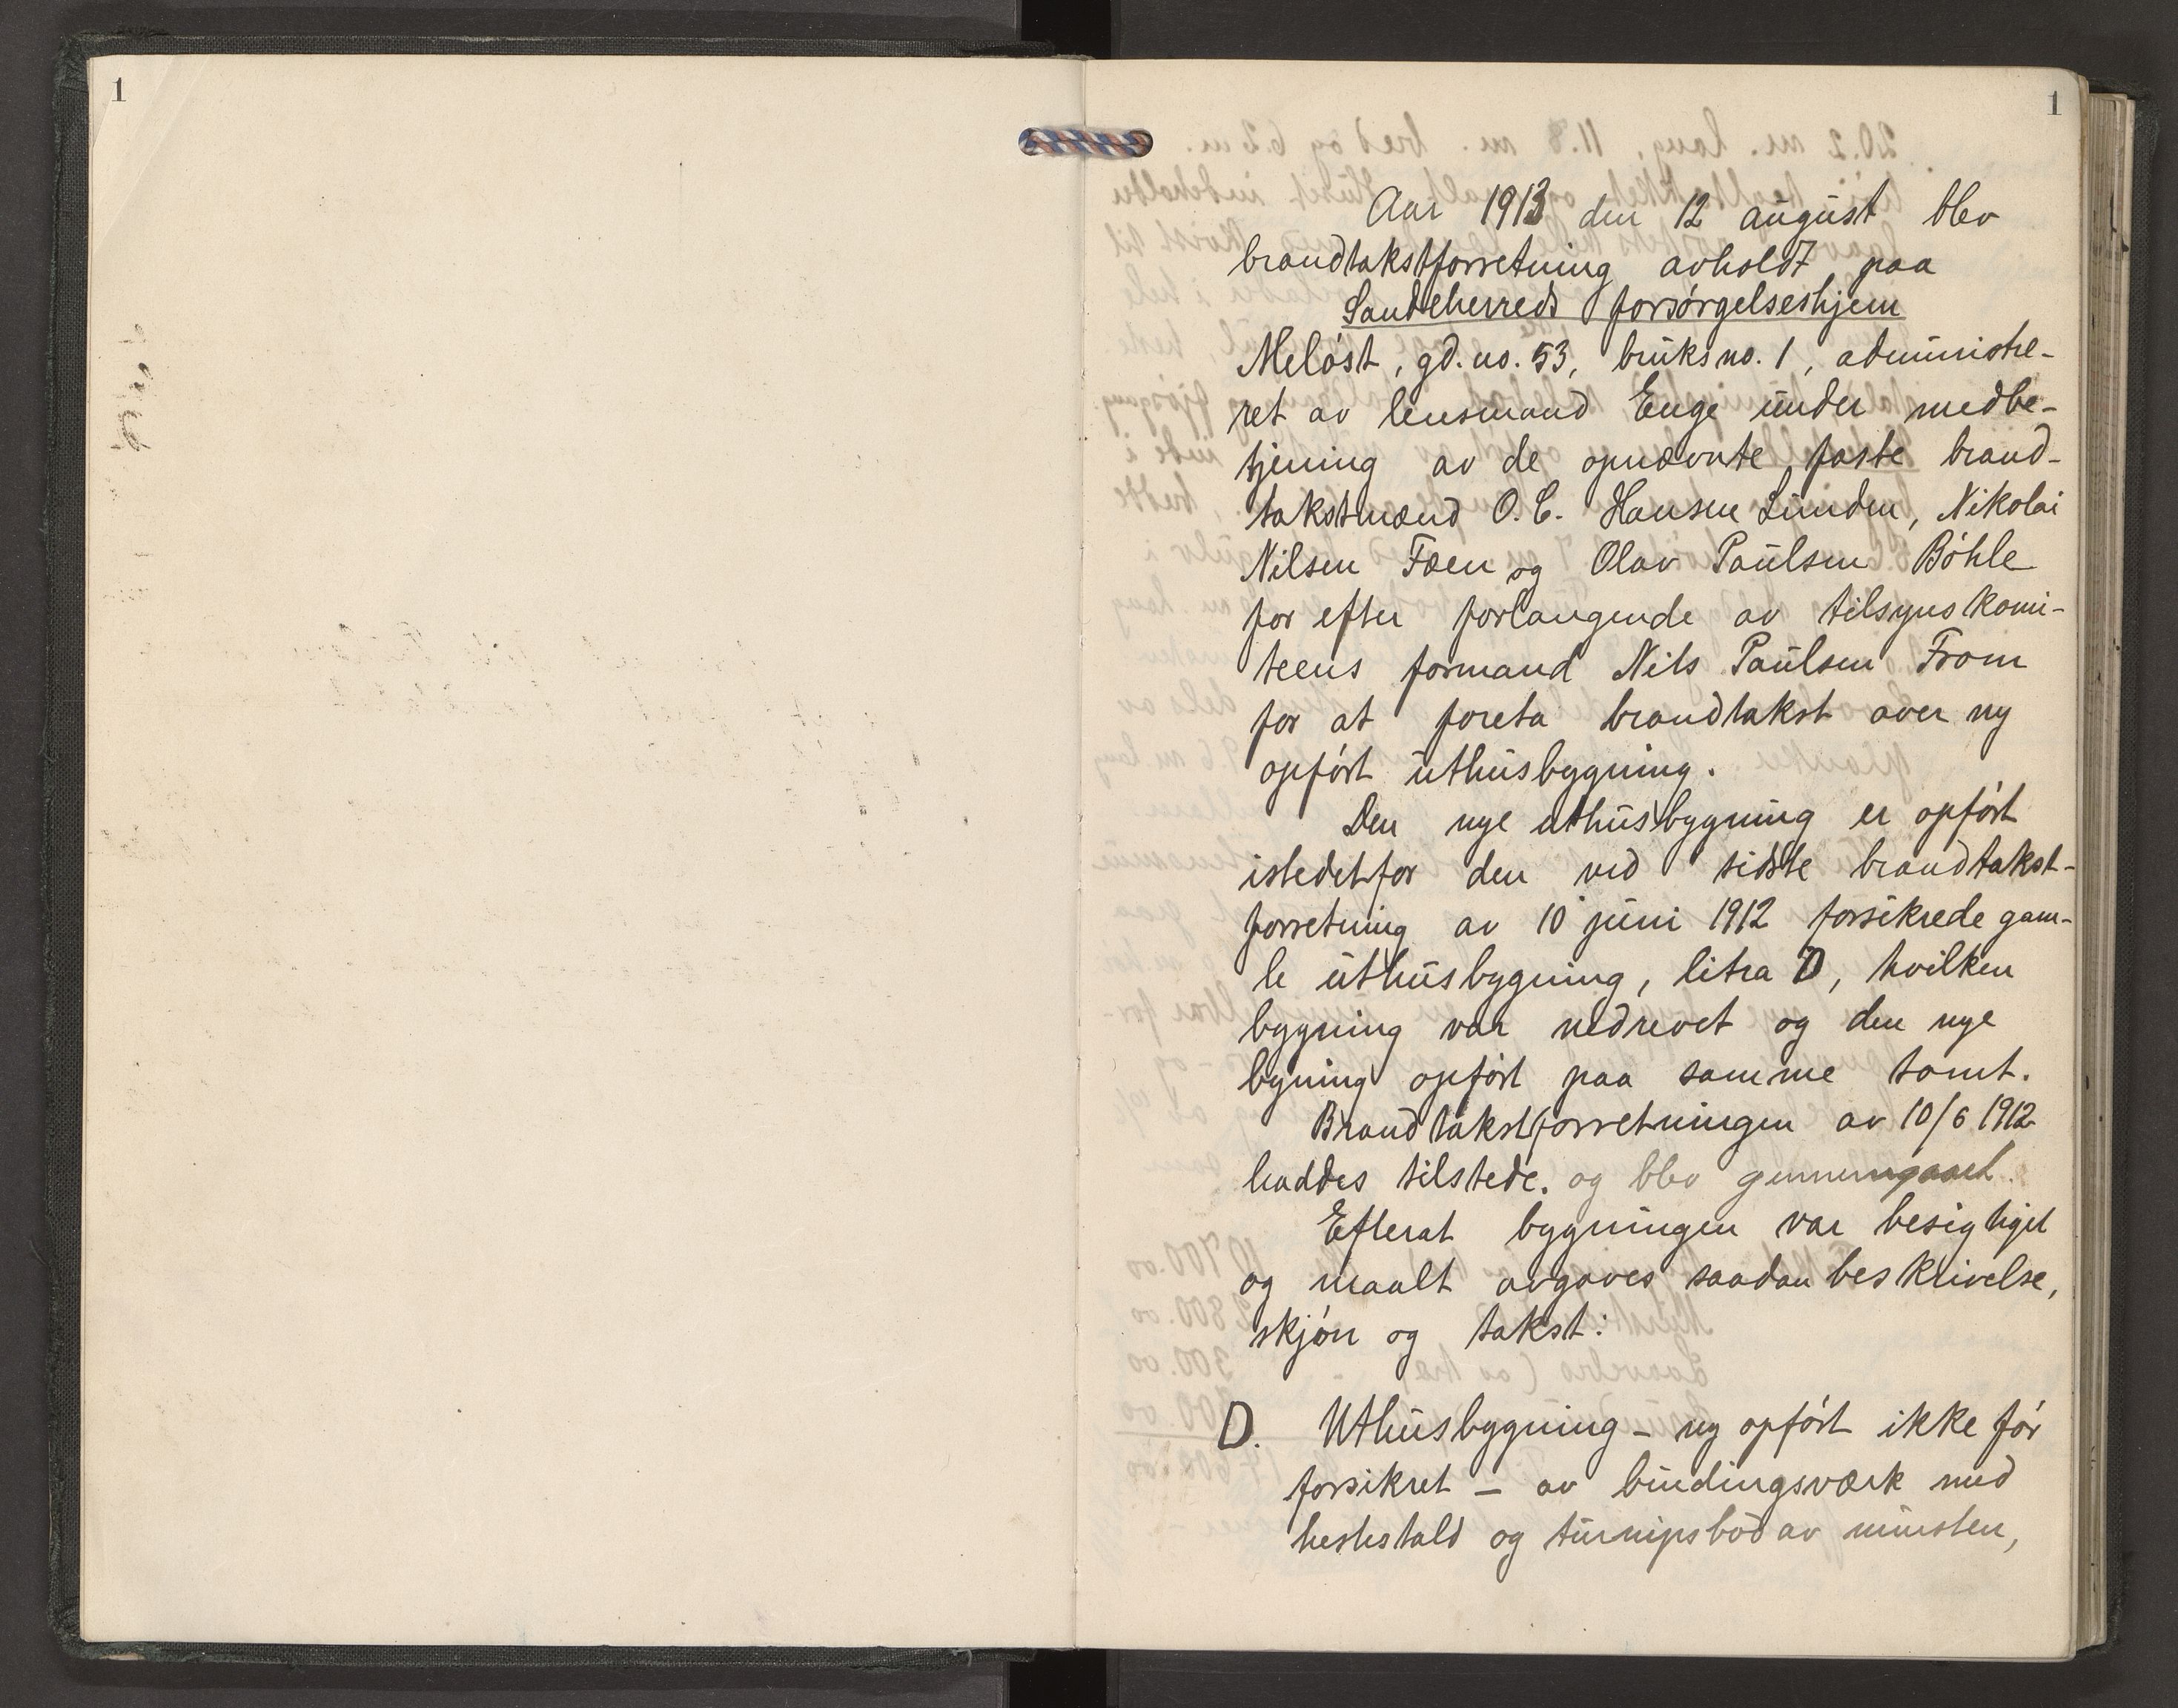 1
1
Aar 1913 den 12 august blev
brandtakstforretning avholdt paa
Sandeherreds forsörgelseshjem
Meløst, gd. no. 53, bruksno. 1, administre-
ret av lensmand Enge under medbe-
tjening av de opnævnte faste brand-
takstmænd O. C. Hansen Lunden, Nikolai
Nilsen Fæen og Olav Paulsen Böhle
for efter forlangende av tilsynskomi-
teens formand Nils Paulsen From
for at foreta brandtakst over ny
opfört uthusbygning.
Den nye uthusbygning er opfört
istedetfor den ved sidste brandtakst-
forretning av 10 juni 1912 forsikrede gam-
le uthusbygning, litra D, hvilken
bygning var nedrevet og den nye
bygning opfört paa samme tomt.
Brandtakstforretningen av 10/6 1912
haddes tilstede. og blev gjennemgaaet.
Efterat bygningen var besigtiget
og maalt avgaves saadan beskrivelse,
skjön og takst:
D. Uthusbygning - ny opfört ikke för
forsikret - av bindingsværk med
hestestald og turnipsbod av mursten,